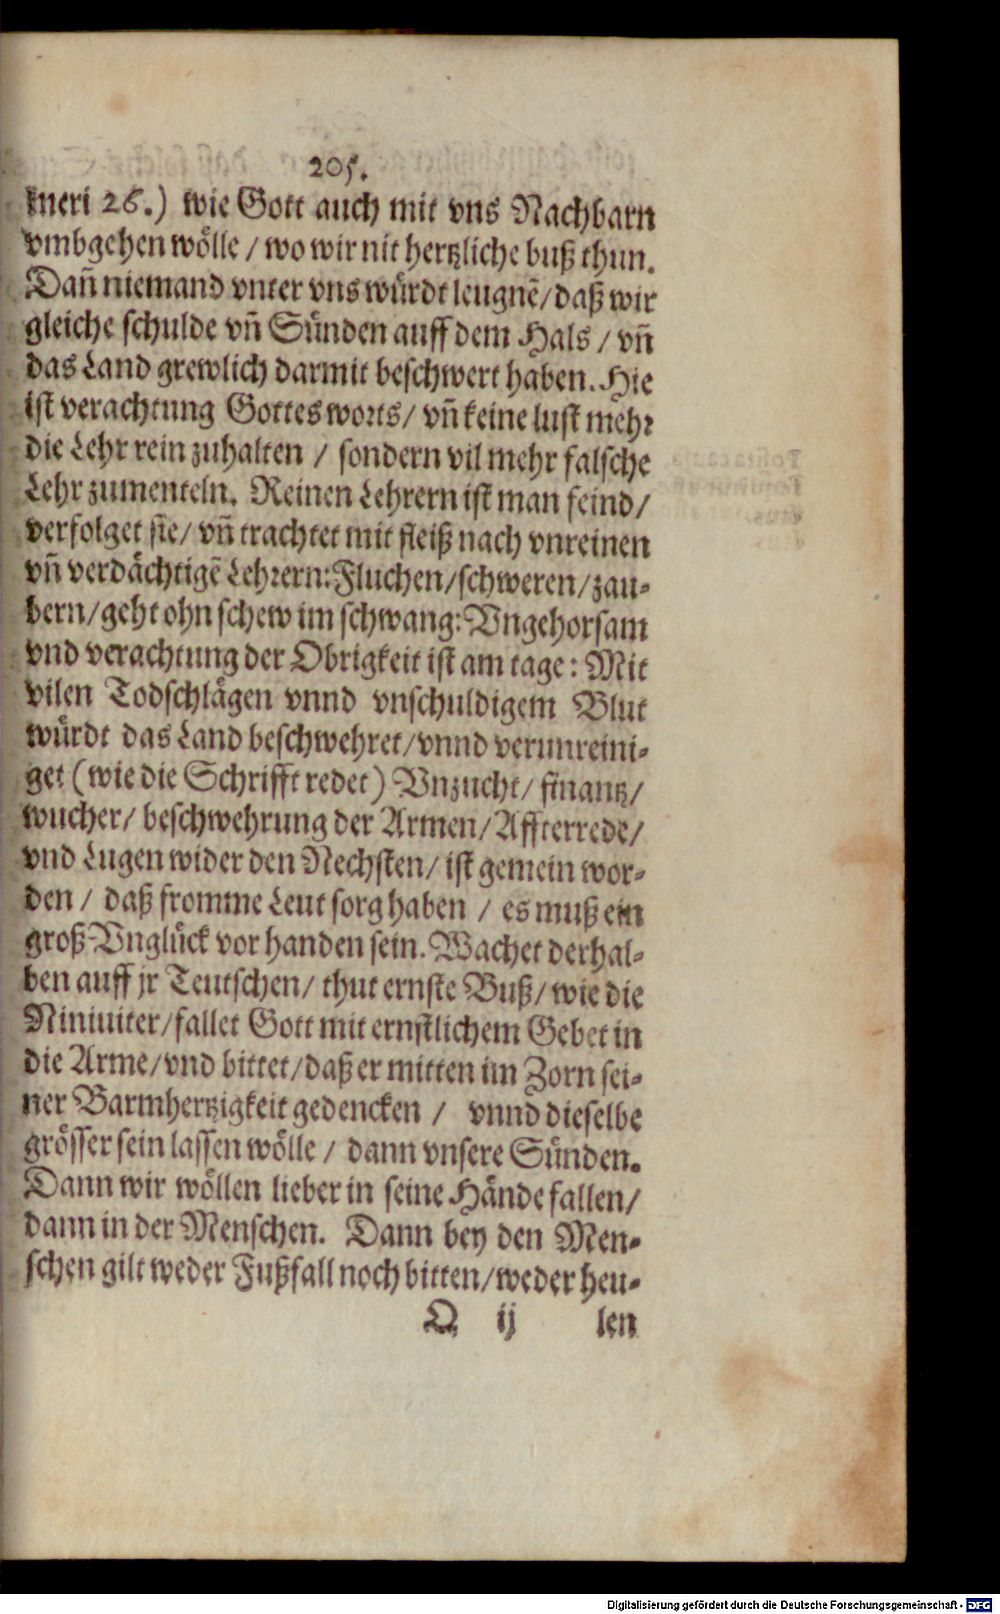 205.
kneri 26.) wie Gott auch mit vns Nachbarn
vmbgehen wölle / wo wir nit hertzliche buß thun.
Dañ niemand vnter vns würdt leugnẽ / daß wir
gleiche schulde vñ Sünden auff dem Hals / vñ
das Land grewlich darmit beschwert haben. Hie
ist verachtung Gottes worts / vñ keine lust mehr
die Lehr rein zuhalten / sondern vil mehr falsche
Lehr zumenteln. Reinen Lehrern ist man feind /
verfolget sie / vñ trachtet mit fleiß nach vnreinen
vñ verdächtigẽ Lehrern: Fluchen / schweren / zau-
bern / geht ohn schew im schwang: Vngehorsam
vnd verachtung der Obrigkeit ist am tage: Mit
vilen Todschlägen vnnd vnschuldigem Blut
würdt das Land beschwehret / vnnd verunreini-
get (wie die Schrifft redet) Vnzucht / finantz /
wucher / beschwehrung der Armen / Affterrede /
vnd Lugen wider den Nechsten / ist gemein wor-
den / daß fromme Leut sorg haben / es muß ein
groß Vnglück vor handen sein. Wachet derhal-
ben auff jr Teutschen / thut ernste Buß / wie die
Niniuiter / fallet Gott mit ernstlichem Gebet in
die Arme / vnd bittet / daß er mitten im Zorn sei-
ner Barmhertzigkeit gedencken / vnnd dieselbe
grösser sein lassen wölle / dann vnsere Sünden.
Dann wir wöllen lieber in seine Hände fallen /
dann in der Menschen. Dann bey den Men-
schen gilt weder Fußfall noch bitten / weder heu-
O ij len
Digitalisierung gefördert durch die Deutsche Forschungsgemeinschaft - DFG